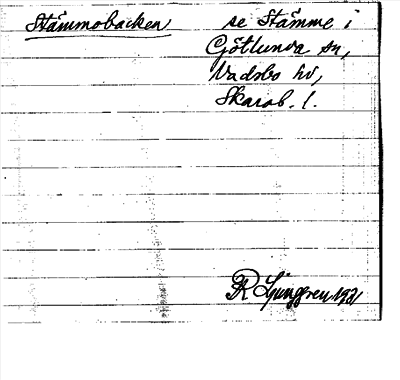 Stämmobacken se Stämme i
Götlunda sn,
Vadsbo hd,
Skarab. l.
R Ljunggren 1921